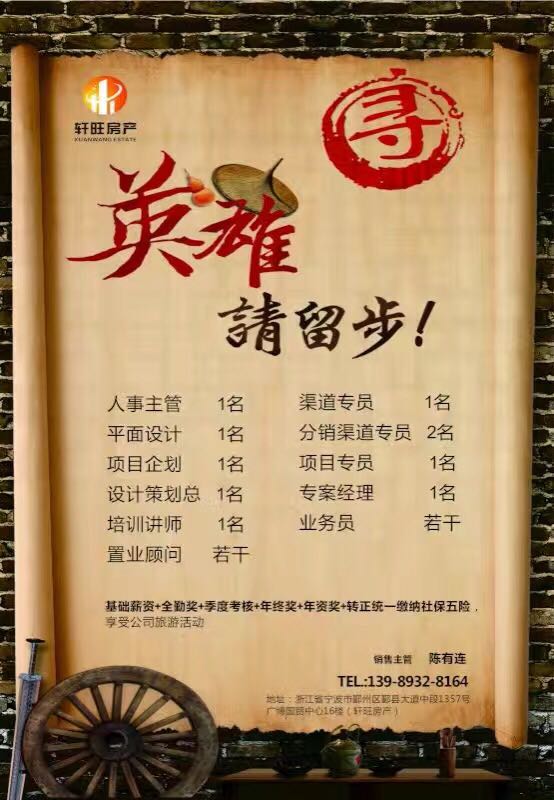 轩旺房产
XUANWANG ESTATE
寻
英雄
請留步!
人事主管 1名
平面设计 1名
项目企划 1名
设计策划总 1名
培训讲师 1名
置业顾问 若干
渠道专员 1名
分销渠道专员 2名
项目专员 1名
专案经理 1名
业务员 若干
基础薪资+全勤奖+季度考核+年终奖+年资奖+转正统一缴纳社保五险,
享受公司旅游活动
销售主管 陈有连
TEL:139-8932-8164
地址:浙江省宁波市鄞州区鄞县大道中段1357号
广博国贸中心16楼(轩旺房产)